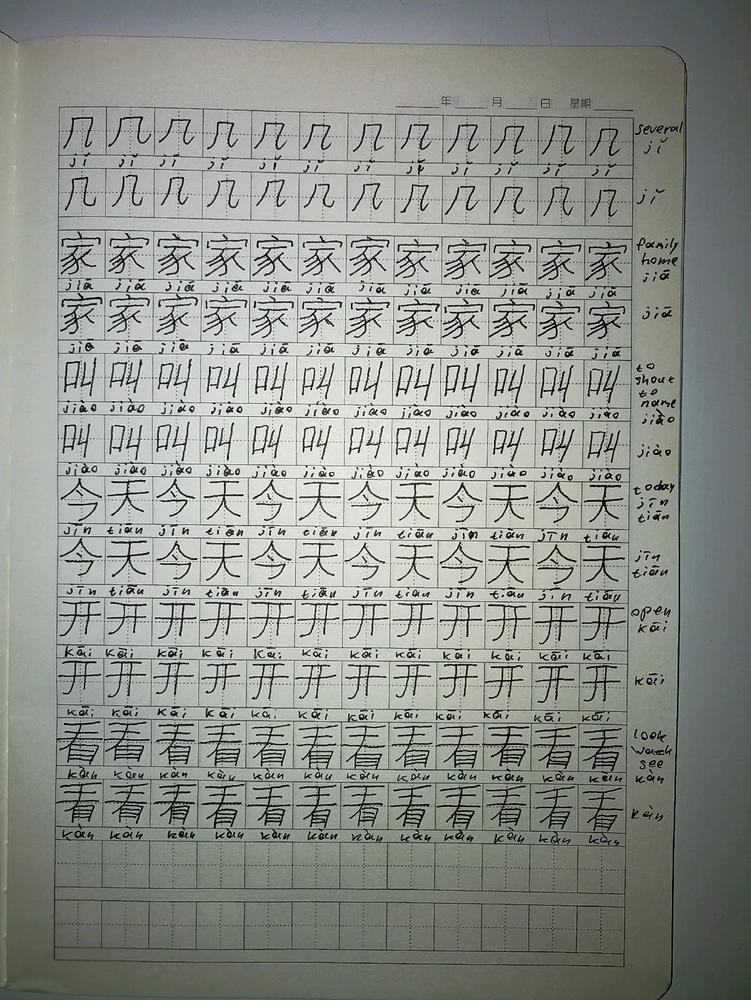 年 月 日 星期
几 几 几 几 几 几 几 几 几 几 几 几 several jǐ
jǐ jǐ jǐ jǐ jǐ jǐ jǐ jǐ jǐ jǐ jǐ jǐ
几 几 几 几 几 几 几 几 几 几 几 几 jǐ
家 家 家 家 家 家 家 家 家 家 家 家 family home jiā
jiā jiā jiā jiā jiā jiā jiā jiā jiā jiā jiā jiā
家 家 家 家 家 家 家 家 家 家 家 家 jiā
jiā jiā jiā jiā jiā jiā jiā jiā jiā jiā jiā jiā
叫 叫 叫 叫 叫 叫 叫 叫 叫 叫 叫 叫 to shout to name jiào
jiào jiào jiào jiào jiào jiào jiào jiào jiào jiào jiào jiào
叫 叫 叫 叫 叫 叫 叫 叫 叫 叫 叫 叫 jiào
jiào jiào jiào jiào jiào jiào jiào jiào jiào jiào jiào jiào
今 天 今 天 今 天 今 天 今 天 今 天 today jīn tiān
jīn tiān jīn tiān jīn tiān jīn tiān jīn tiān jīn tiān
今 天 今 天 今 天 今 天 今 天 今 天 jīn tiān
jīn tiān jīn tiān jīn tiān jīn tiān jīn tiān jīn tiān
开 开 开 开 开 开 开 开 开 开 开 开 open kāi
kāi kāi kāi kāi kāi kāi kāi kāi kāi kāi kāi kāi
开 开 开 开 开 开 开 开 开 开 开 开 kāi
kāi kāi kāi kāi kāi kāi kāi kāi kāi kāi kāi kāi
看 看 看 看 看 看 看 看 看 看 看 看 look watch see kàn
kàn kàn kàn kàn kàn kàn kàn kàn kàn kàn kàn kàn
看 看 看 看 看 看 看 看 看 看 看 看 kàn
kàn kàn kàn kàn kàn kàn kàn kàn kàn kàn kàn kàn